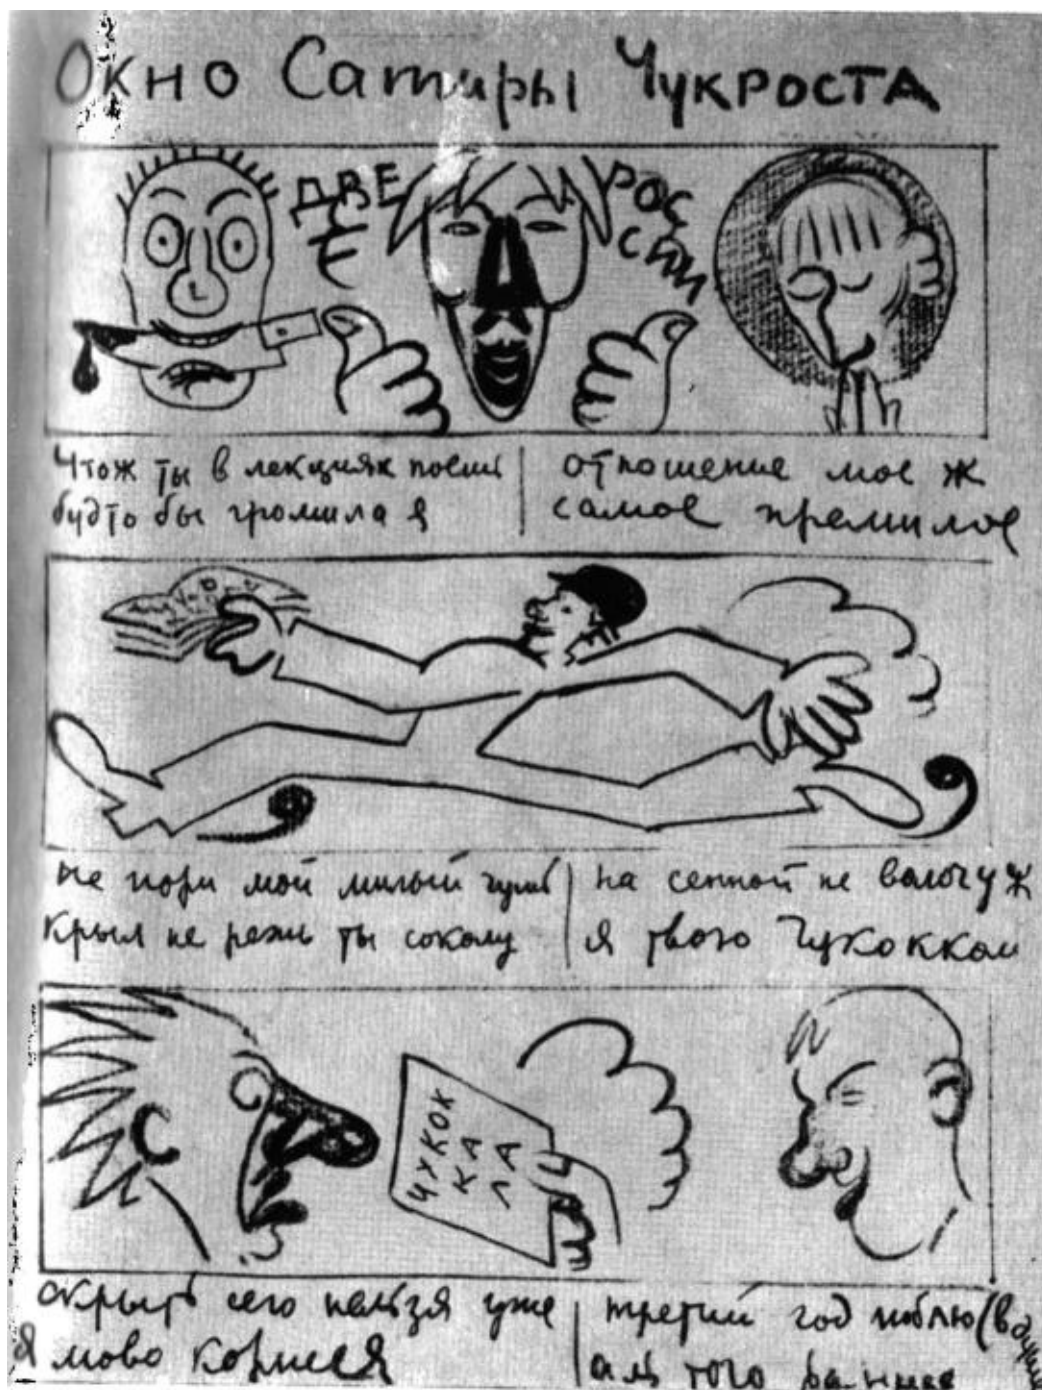 Окно Сатиры Чукроста
ДВЕ
РОС
СИИ
Чтож ты в лекциях поешь
будто бы громила я
отношение мое ж
самое премилое
не пори мой милый чушь
крыл не режь ты соколу
на сенной не волочу ж
я твою
ЧУКОК
КА
ЛА
скрыть сего нельзя уже
я мово корнея
третий год люблю (в душе
аль того раннее